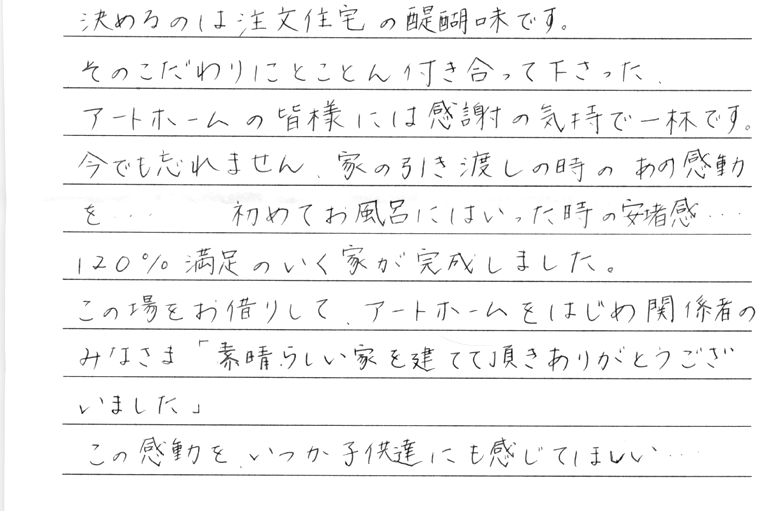 決めるのは注文住宅の醍醐味です。
そのこだわりにとことん付き合って下さった、
アートホームの皆様には感謝の気持で一杯です。
今でも忘れません、家の引き渡しの時のあの感動
を… 初めてお風呂にはいった時の安堵感…
120%満足のいく家が完成しました。
この場をお借りして、アートホームをはじめ関係者の
みなさま「素晴らしい家を建てて頂きありがとうござ
いました」
この感動を、いつか子供達にも感じてほしい…